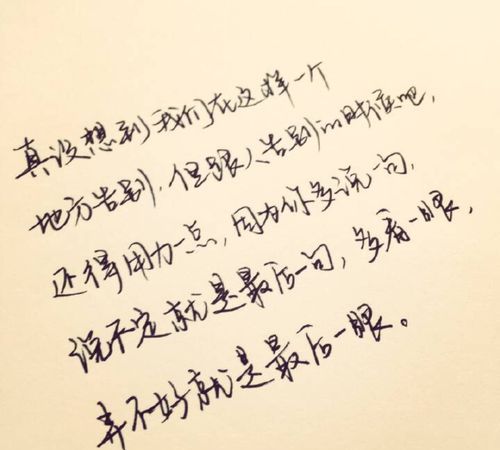 真没想到我们在这样一个
地方告别,但跟人告别的时候吧,
还得用力一点,因为你多说一句,
说不定就是最后一句,多看一眼,
弄不好就是最后一眼。